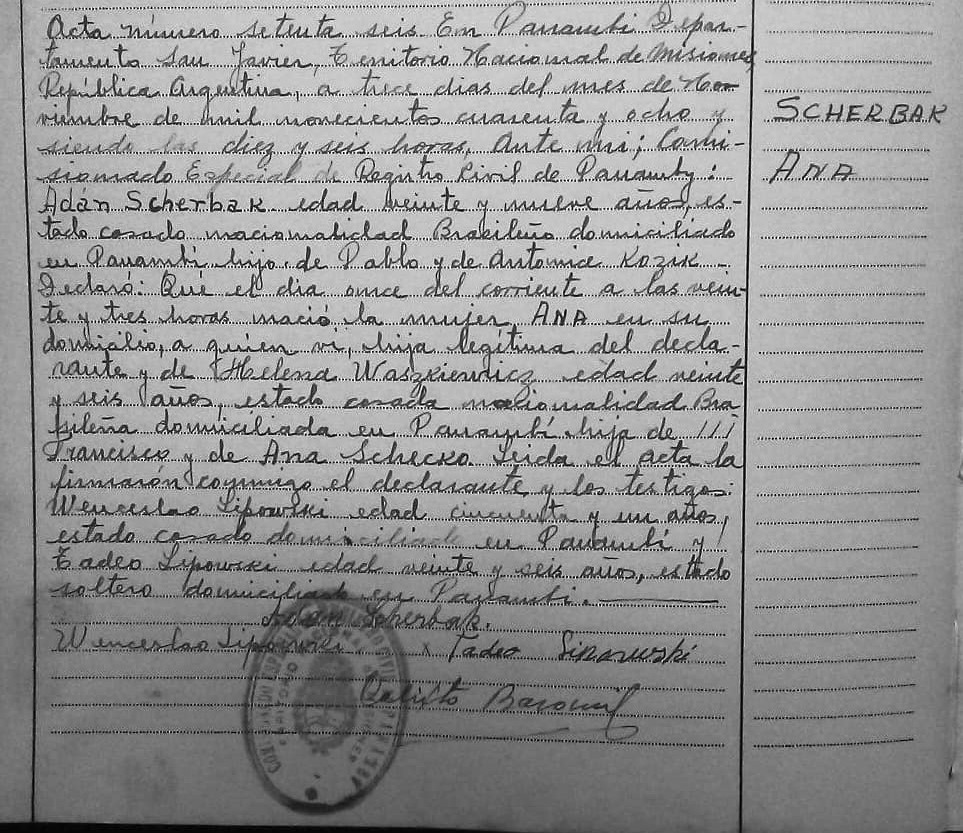 Acta número setenta seis En Panambí Depar-
tamento San Javier, Territorio Nacional de Misiones,
República Argentina, a trece dias del mes de No-
viembre de mil novecientos cuarenta y ocho y
siendo las diez y seis horas, Ante mi; Comi-
sionado Especial de Registro Civil de Panamby:
Adán Scherbak edad veinte y nueve años, es-
tado casado nacionalidad Brasileño domiciliado
en Panambí hijo de Pablo y de Antonice Kozik -
Declaró: Qué el dia once del corriente a las vein-
te y tres horas nació la mujer ANA en su
domicilio, a quien vi, hija legítima del decla-
rante y de Helena Waszkiewicz edad veinte
y seis años, estado casada nacionalidad Bra
sileña domiciliada en Panambí hija de
Francisco y de Ana Schecko. Leida el acta la
firmarón conmigo el declarante y los testigos:
Wenceslao Lipowski edad cincuenta y un años,
estado casado domiciliado en Panambí y
Tadeo Lipowski edad veinte y seis años, estado
soltero domiciliado en Panambí.
Adan Scherbak.
Wenceslao Lipowski x Tadeo Lipowski
SCHERBAK
ANA